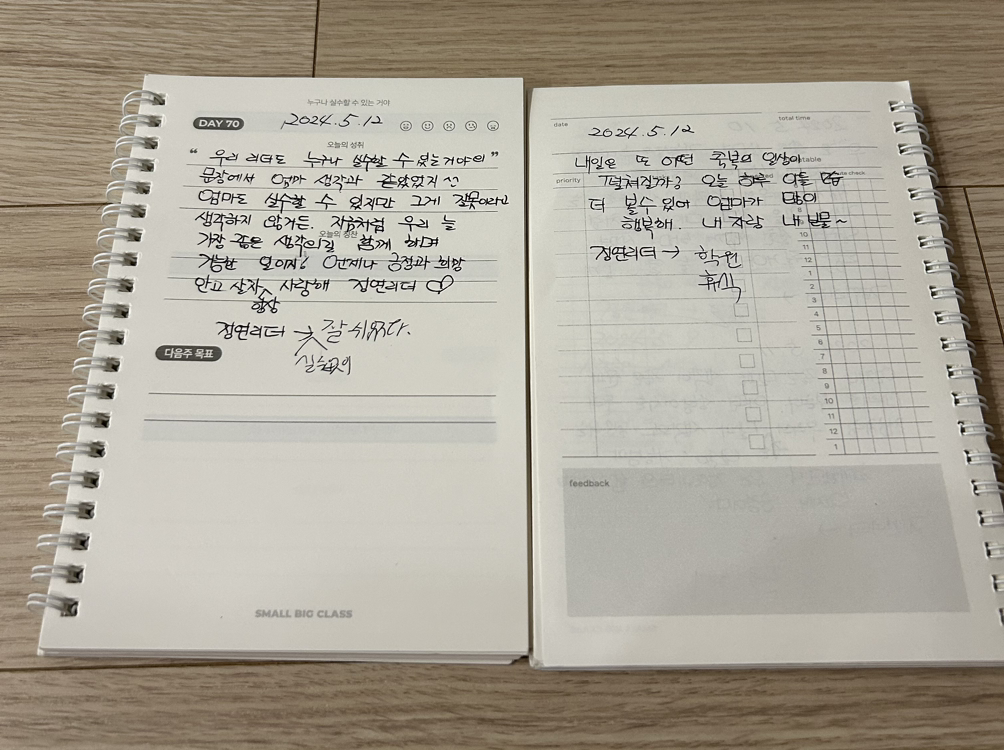 누구나 실수할 수 있는 거야
DAY 70
2024.5.12
오늘의 성취
"우리 리더도 누구나 실수할 수 있는거야의"
문장에서 엄마 생각과 같았었지^^
엄마도 실수할 수 있지만 그게 잘못이라고
생각하지 않거든. 지금처럼 우리 늘
오늘의 칭찬
가장 좋은 생각의길 함께 하며
가능한 일이지! 언제나 긍정과 희망
안고 살자 사랑해 정연리더♡
항상
정연리더 → 잘 쉬었다.
다음주 목표
SMALL BIG CLASS
date
total time
2024.5.12
내일은 또 어떤 축복의 일상이
펼쳐질까? 오늘 하루 아들 모습
priority
더 볼수 있어 엄마가 많이
행복해. 내 자랑 내 보물~
정연리더→ 학원
휴식
10
11
12
1
2
3
4
5
6
7
8
9
10
11
12
1
feedback